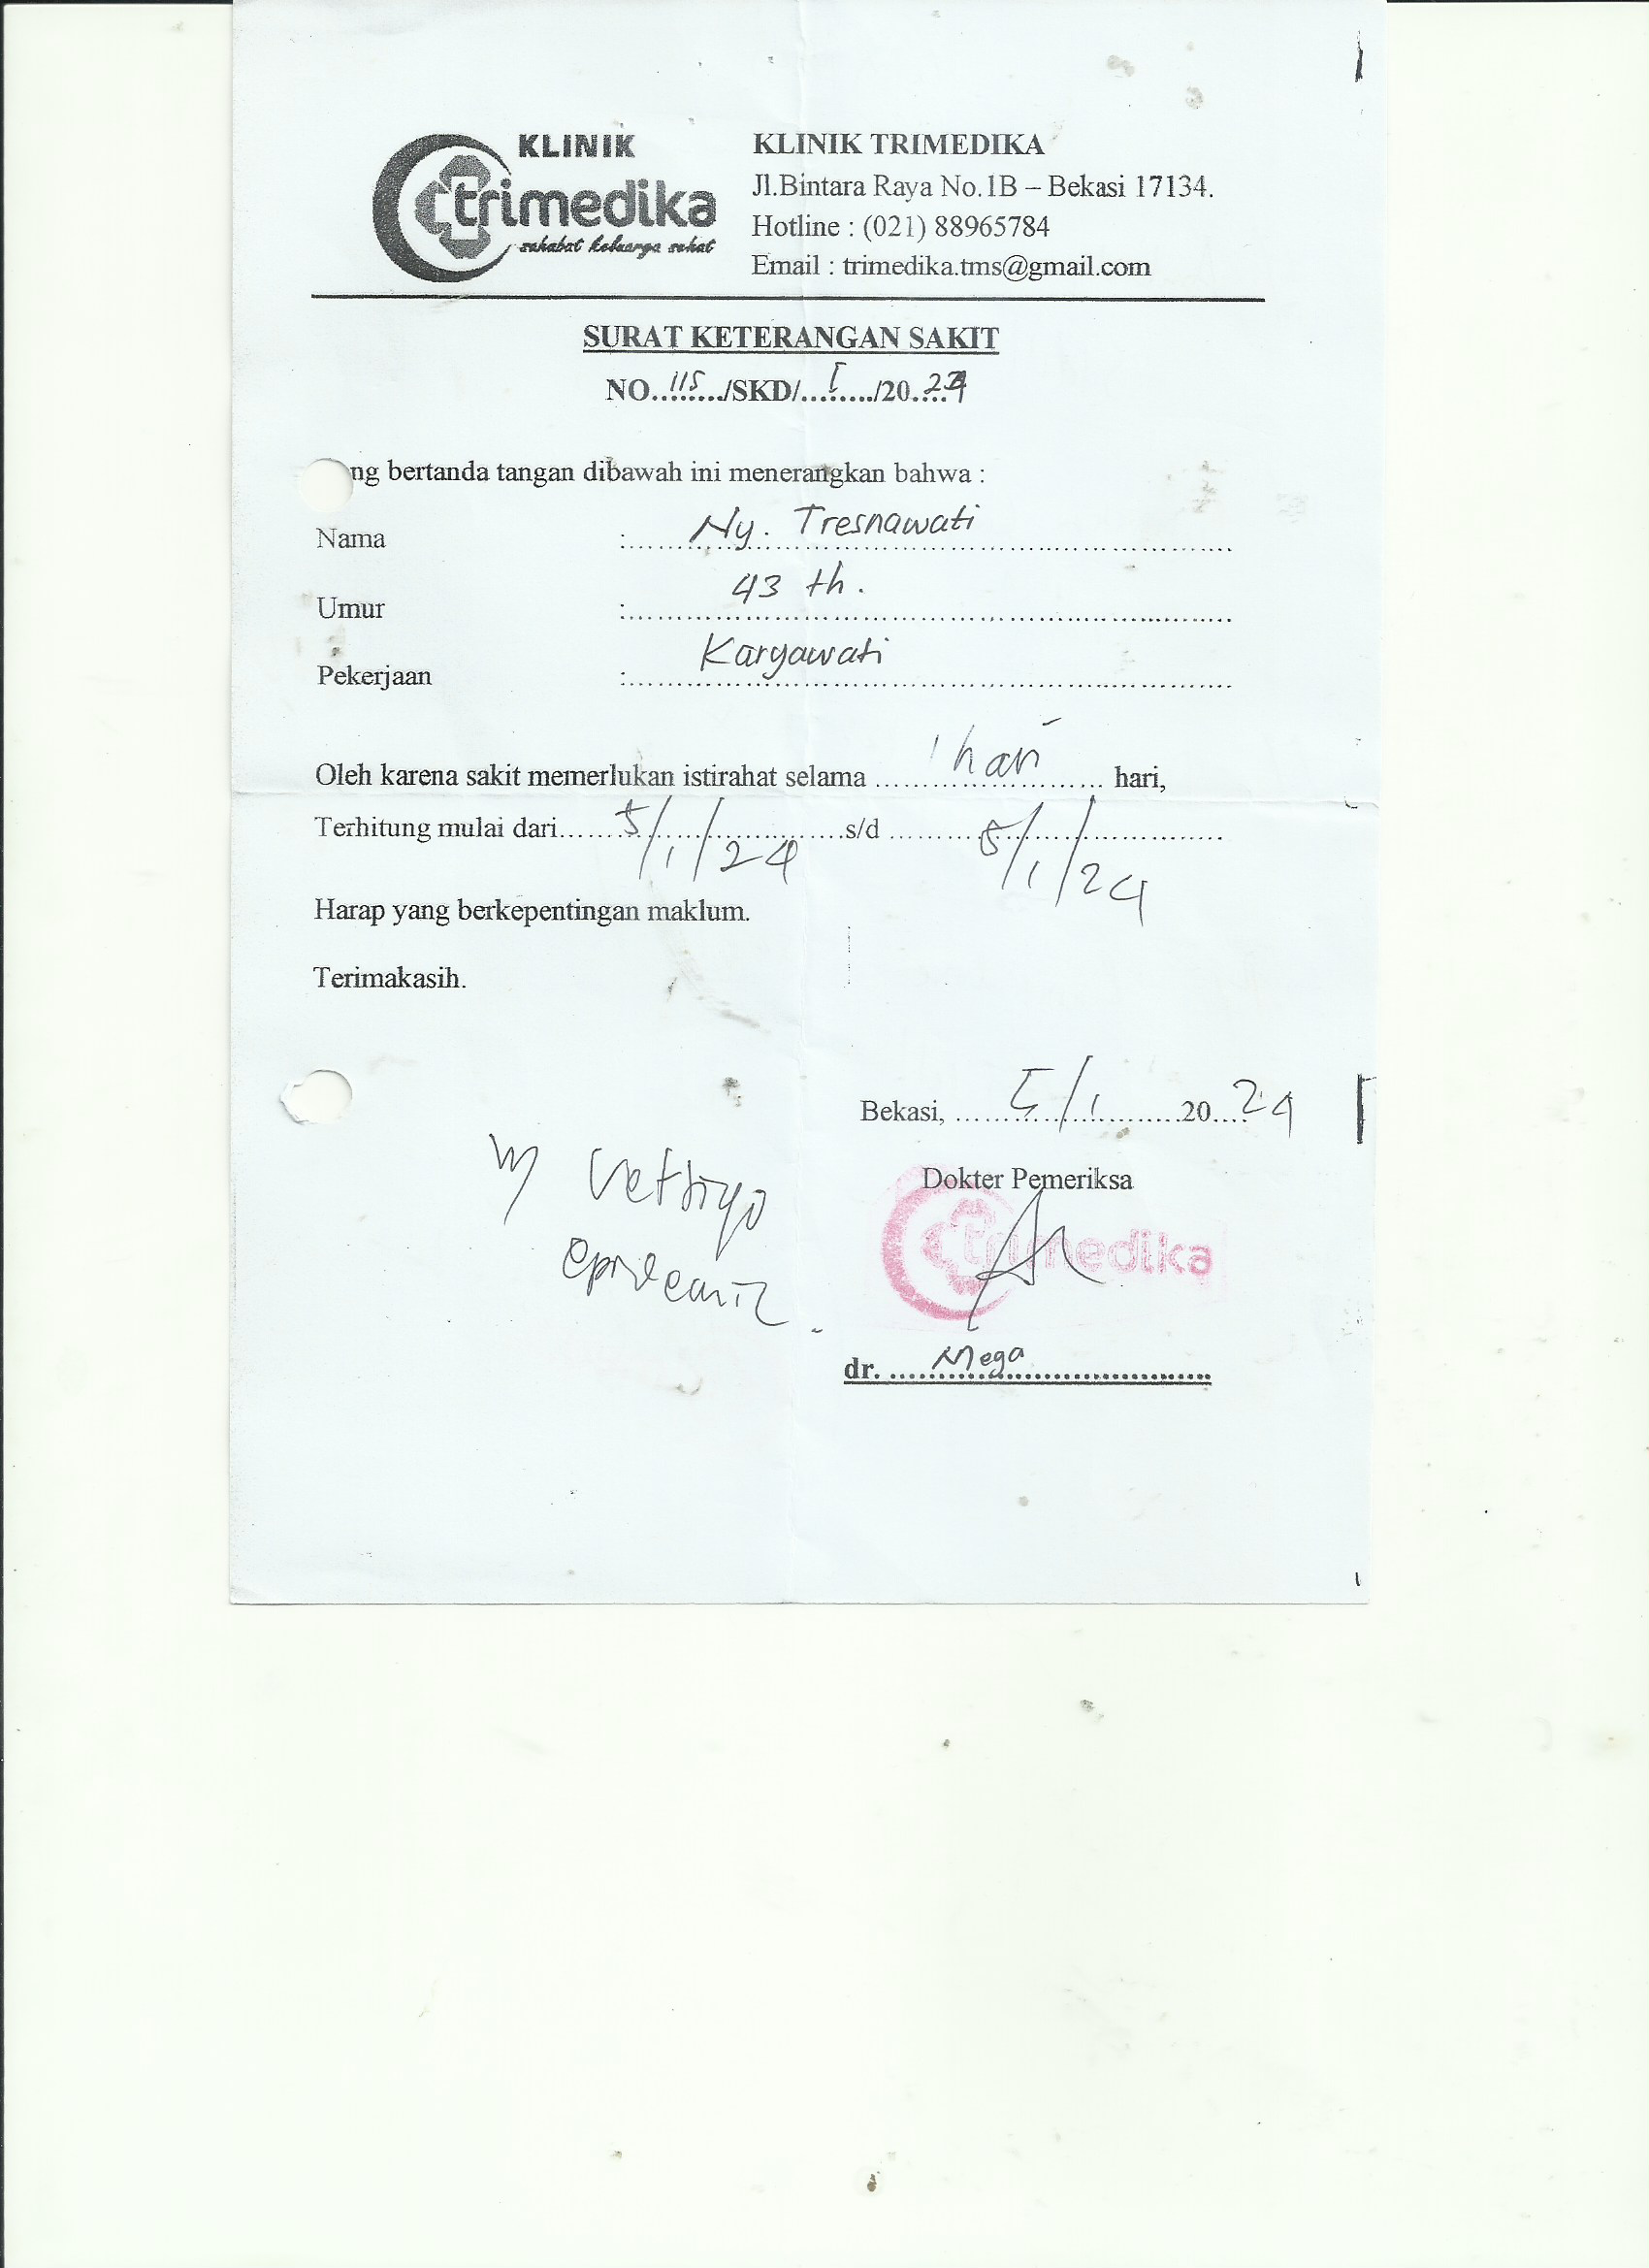 KLINIK
trimedika
sahabat keluarga sehat
KLINIK TRIMEDIKA
Jl.Bintara Raya No.1B – Bekasi 17134.
Hotline : (021) 88965784
Email : trimedika.tms@gmail.com
SURAT KETERANGAN SAKIT
NO. 115 /SKD/ I /20 24
ng bertanda tangan dibawah ini menerangkan bahwa :
Nama : Ny. Tresnawati
Umur : 43 th.
Pekerjaan : Karyawati
Oleh karena sakit memerlukan istirahat selama 1 hari hari,
Terhitung mulai dari 5/1/24 s/d 5/1/24
Harap yang berkepentingan maklum.
Terimakasih.
Bekasi, 5/1 20 24
Dokter Pemeriksa
Vertigo
trimedika
dr. Mega